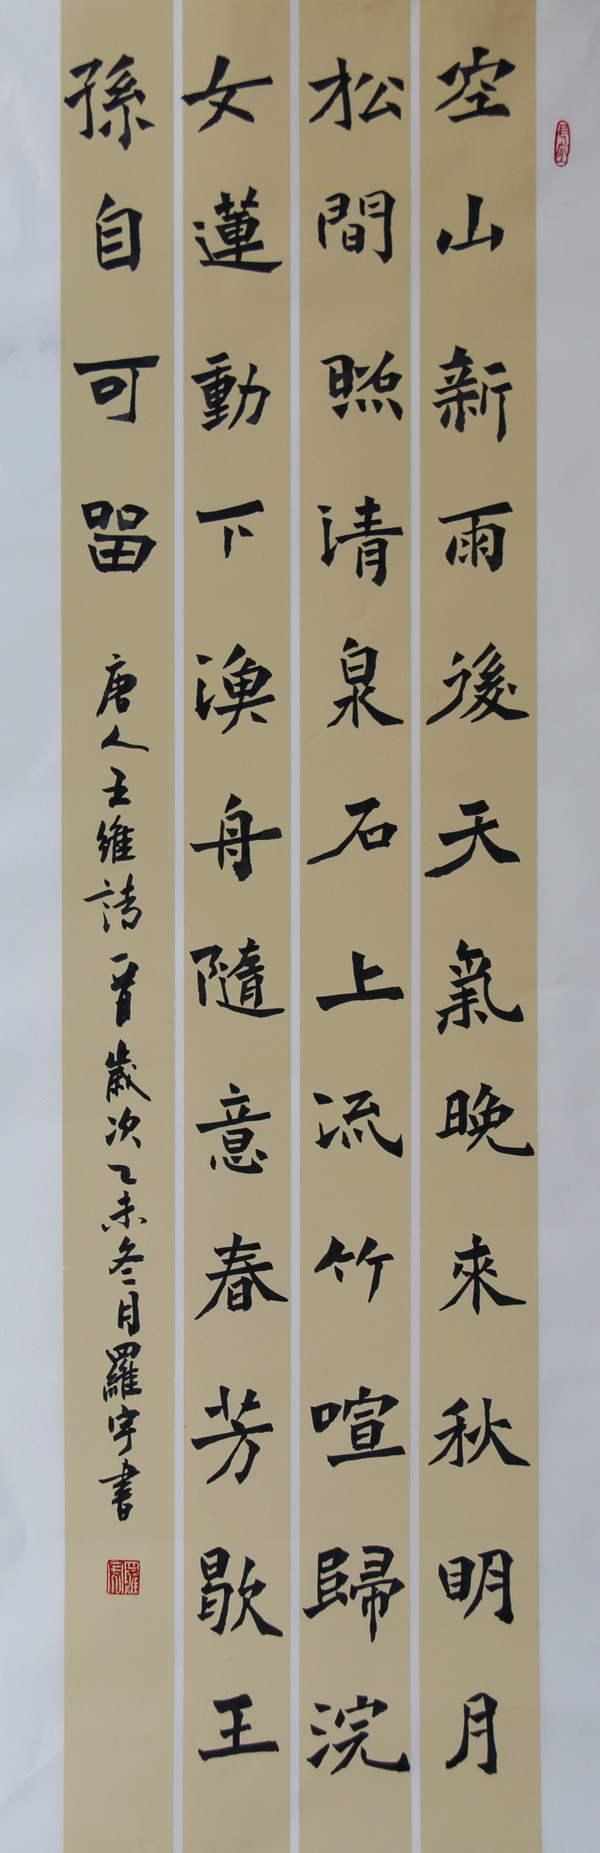 空山新雨後天氣晚來秋明月
松間照清泉石上流竹喧歸浣
女蓮動下漁舟隨意春芳歇王
孫自可留
唐人王維詩一首歲次乙未冬月羅宇書